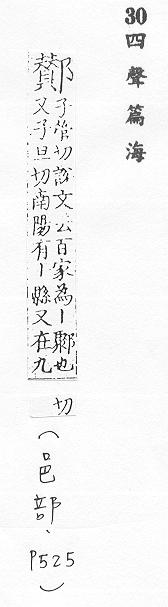 30 四聲篇海
酇
子管切說文云百家為丨也
又子旦切南陽有丨縣又在九
切
(邑部、P525)